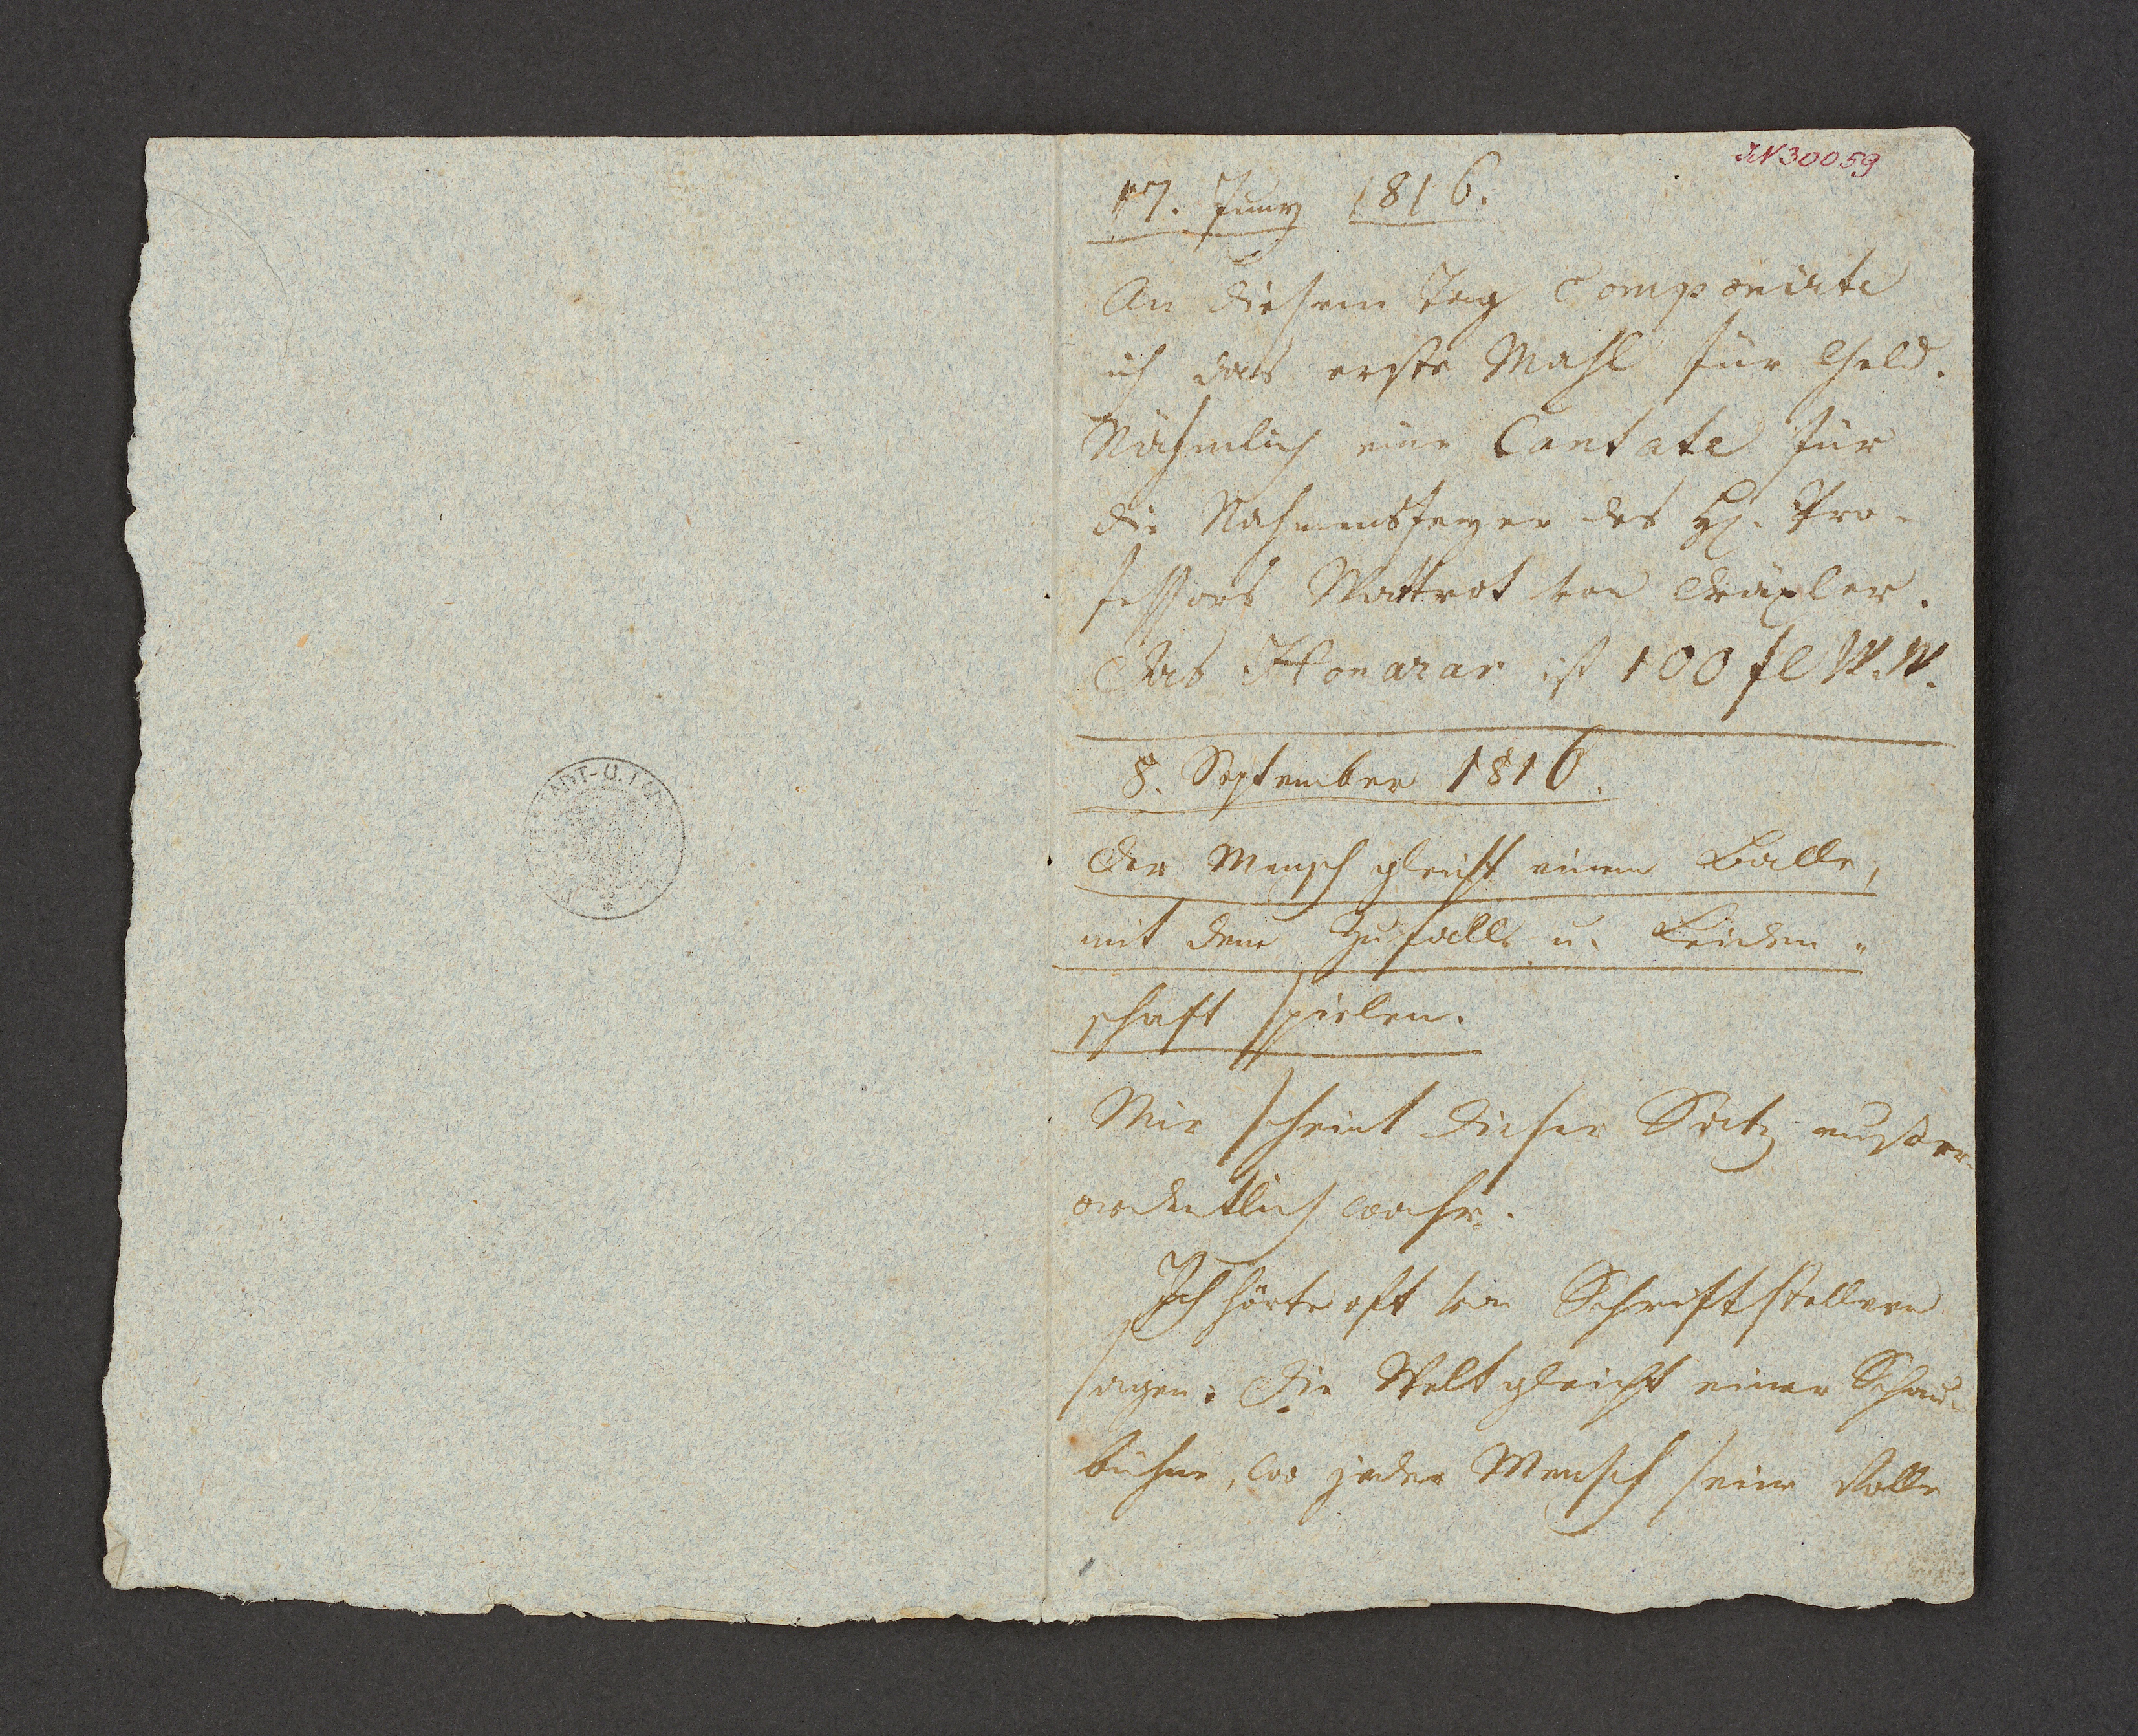 JN 30059
17. Juny 1816.
An diesem Tag componirte
ich das erste Mahl für Geld.
Nähmlich eine Cantate für
die Nahmensfeyer des H. Pro-
fessors Wattrot von Dräxler.
Das Honorar ist 100 fl W.W.
8. September 1816.
Der Mensch gleicht einem Balle,
mit dem Zufall u. Leiden-
schaft spielen.
Mir scheint dieser Satz außer-
ordentlich wahr.
Ich hörte oft von Schriftstellern
sagen: Die Welt gleicht einer Schau-
bühne, wo jeder Mensch seine Rolle